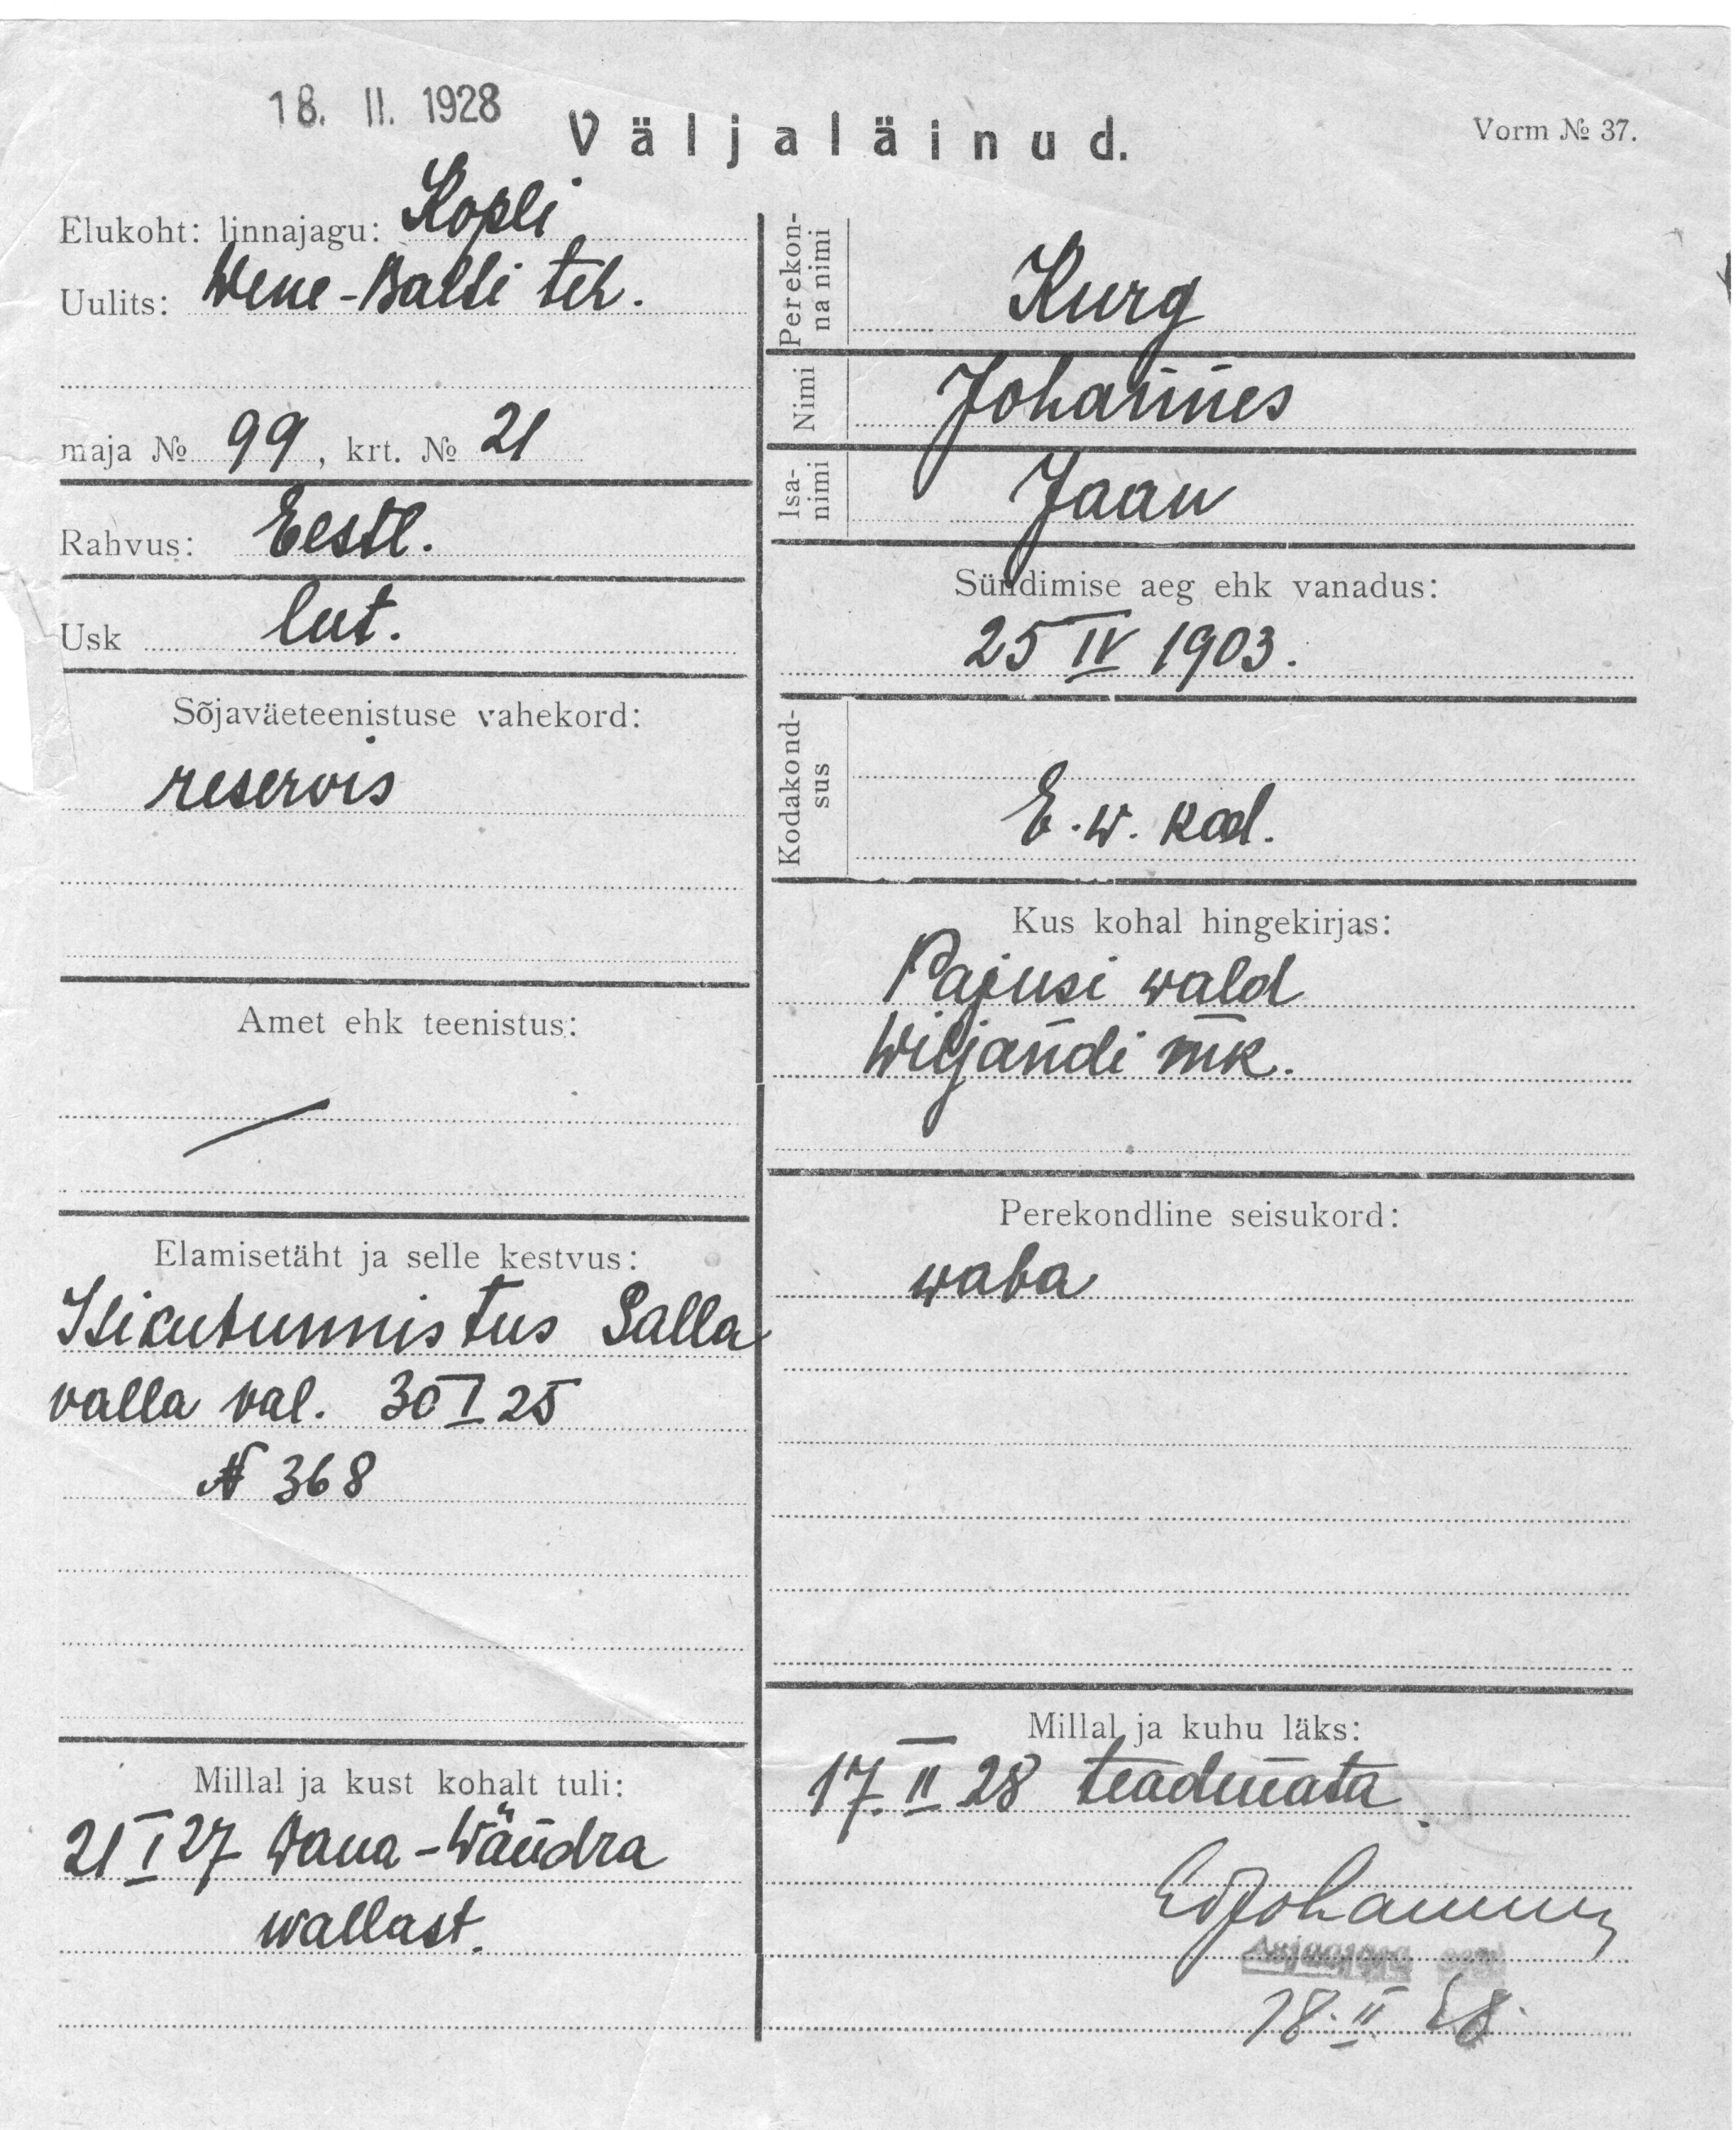 18. II. 1928
Väljaläinud.
Vorm № 37.
Elukoht: linnajagu: Kopli
Uulits: Wene-Balti teh.
maja № 99, krt. № 21
Rahvus: Eestl.
Usk lut.
Sõjaväeteenistuse vahekord:
reservis
Amet ehk teenistus:
Elamisetäht ja selle kestvus:
Isikutunnistus Salla
valla val. 30 I 25
№ 368
Millal ja kust kohalt tuli:
21 I 27 Vana-Wändra
wallast.
Perekon-
na nimi
Kurg
Nimi
Johannes
Isa-
nimi
Jaan
Sündimise aeg ehk vanadus:
25 IV 1903.
Kodakond-
sus
E.w. kod.
Kus kohal hingekirjas:
Pajusi wald
Wiljandi mk.
Perekondline seisukord:
waba
Millal ja kuhu läks:
17. II 28 teadmata
18. II 28.